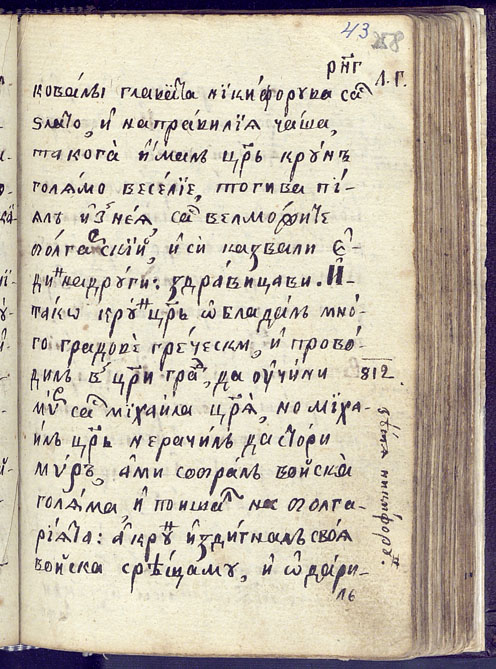 43 58
рн҃г Л. Г.
ковалы главата никифорува саⷭ҇
злато, и направилїѧ чаша,
такога и малъ цр҃ь крꙋнъ
голѧмо веселїе, тогива пї-
ѧлъ изⸯ неѧ, саⷭ҇ велможите
болгаⷬскїи, и си казвали е-
диⷩнадрꙋги: здравицави. И
тако крꙋⷩ цр҃ь ѡбладалъ мно-
го градове гречески, и прово-
дилъ вⸯ цр҃и граⷣ, да оучини 812.
миⷬ саⷭ҇ михаила цр҃ѧ, но миха-
илъ цр҃ь нерачилъ да стори
миръ, ами собралъ войска
голѧма, и поишаⷧ на болга-
рїѧта: а крꙋⷩ издигналъ своѧ
войска срѣщамꙋ, и ѡдари-
лъ
никифорꙋ.